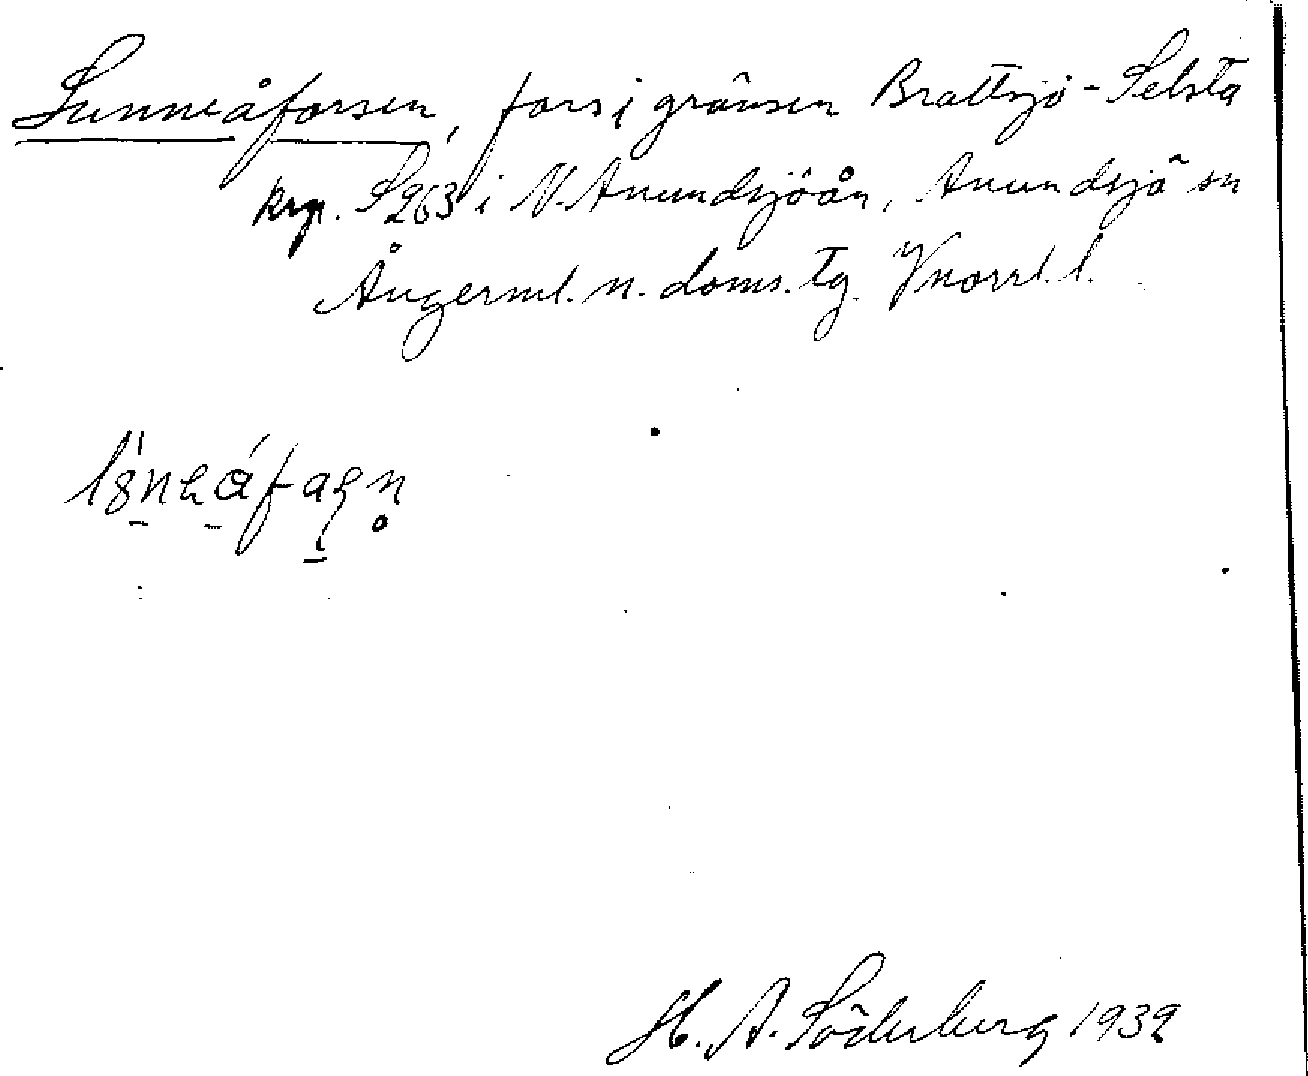 Sunneåforsen, fors i gränsen Brattsjö - Selsta
krp. S 263 i N. Anundsjöån, Anundsjö sn
Ångerml. n. doms. tg. Vnorrl. l.
H. A. Söderberg 1932